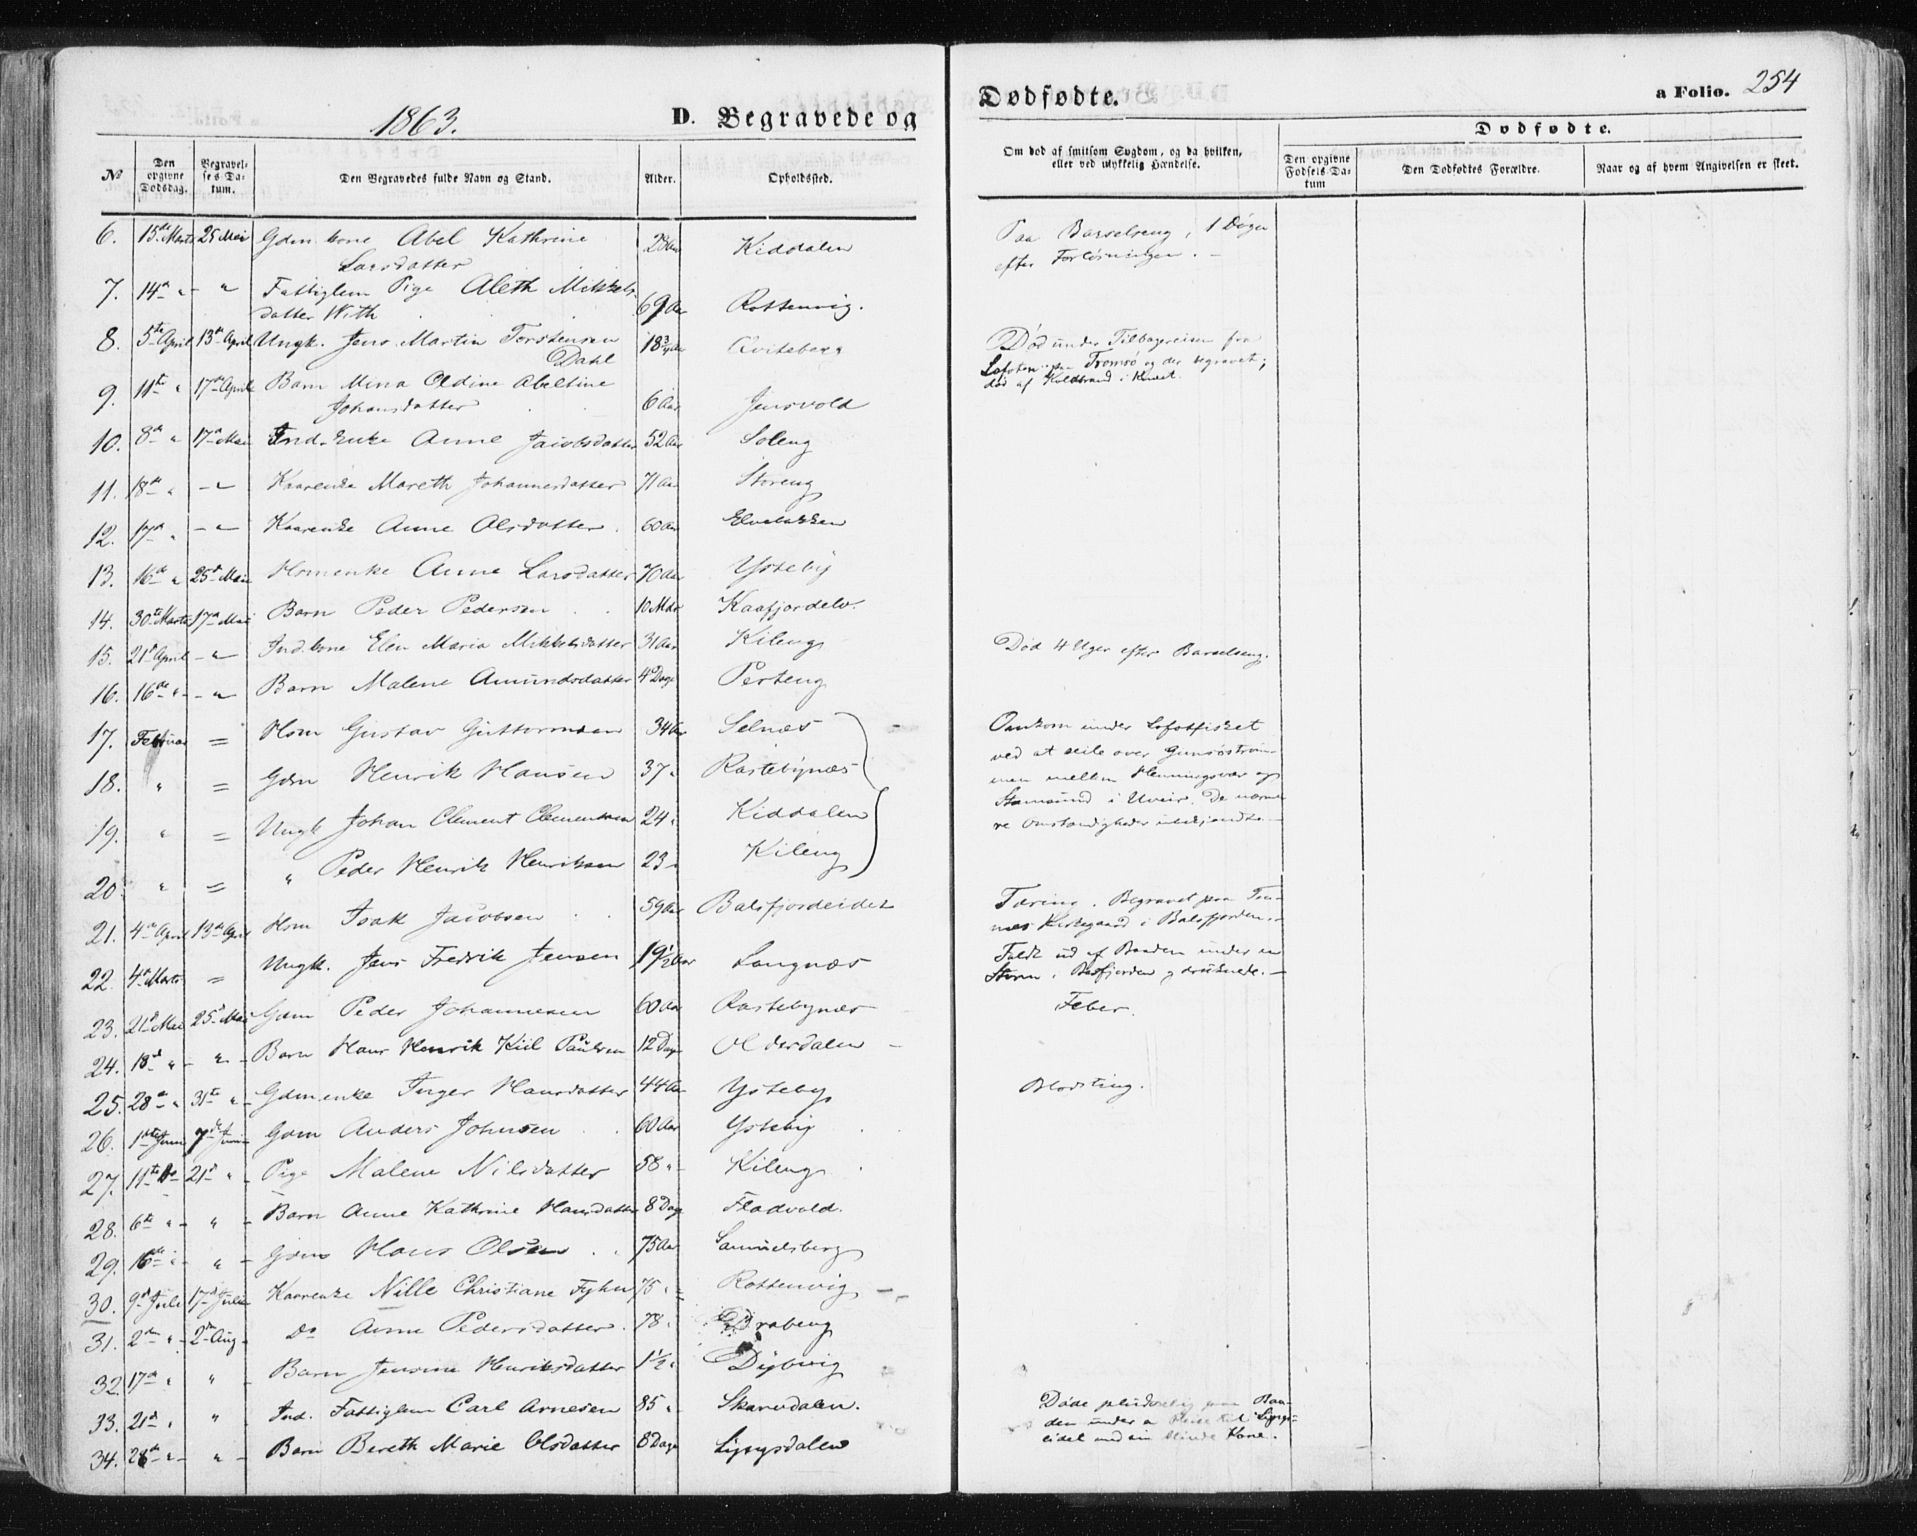 1863.
D. Begravede og
Dødfødte.
a Folio. 254
№
Den opgivne Dødsdag.
Begravelses Datum.
Den Begravedes fulde Navn og Stand.
Alder.
Opholdssted.
Om død af smitsom Sygdom, og da hvilken, eller ved ulykkelig Hændelse.
Dødfødte.
Den opgivne Fødsels Datum
Den Dødfødtes Forældre.
Naar og af hvem Angivelsen er skeet.
6. 15de Marts 25 Mai Gdm. kone Abel Kathrine Kiddalen Paa Barselseng, 1 Døgn
Larsdatter efter Forløsningen.
7. 14d " - " Fattiglem Pige Aleth Mikkels-
datter With 69 Aar Rottenvig.
8. 5te April 13de April Ungk. Jens Martin Torstensen 18 3/4 Aar Qviteberg Død under Tilbagereisen fra
Dahl Lofoten paa Tromsø og der begravet;
død af Koldbrand i Knæet.
9. 11te " 17de April Barn Mina Oldine Abeltine
Johansdatter 6 Aar Jensvold
10. 8de " 17d Mai Ind. Enke Anne Jacobsdatter 52 Aar Soleng
11. 18de " - " Kaarenke Mareth Johannesdatter 71 Aar Storeng
12. 17d " - " Kaarenke Anne Olsdatter 60 Aar Elvebakken
13. 16de " 25d Mai Hsmenke Anne Larsdatter 70 Aar Ysteby
14. 30te Marts 17d Mai Barn Peder Pedersen 10 Mdr. Kaafjordelv.
15. 21d April - " Ind. kone Elen Maria Mikkelsdatter 31 Aar Kileng Død 4 Uger efter Barselseng.
16. 16de " - " Barn Malene Amundsdatter 4 Dage Perteng
17. Februar = Hsm Gustav Guttormsen 34 Aar Selnæs Omkom under Lofotfisket
ved at seile over Gimsøstrøm-
18. " = Gdm Henrik Hansen 37 " Rastebynæs men mellem Henningsvær og
Stamsund i Uveir. De nærme-
19. " = Ungk Johan Clement Clementsen 24 " Kiddalen re Omstændigheder ubekjendte.
20. " = " Peder Henrik Henriksen 23 " Kileng
21. 4d April 13de April Hsm Isak Jacobsen 59 Aar Balsfjordeidet Tæring. Begravet paa Ten-
næs Kirkegaard i Balsfjorden.
22. 4d Marts = Ungk. Jens Fredrik Jensen 19 1/2 Aar Langnæs Faldt ud af Baaden under en
Storm i Balsfjorden og druknede.
23. 21d Mai 25d Mai Gdm Peder Johannesen 60 Aar Rastebynæs Feber.
24. 18d " - " - Barn Hans Henrik Kiil Paulsen 12 Dage Olderdalen
25. 28d " 31te " - Gdmenke Inger Hansdatter 44 Aar Ysteby Blodsting.
26. 1ste Juni 7d Juni Gdm Anders Johnsen 60 Aar Ysteby
27. 11te 21d " - Pige Malene Nilsdatter 58 " Kileng
28. 6te " - " - Barn Anne Kathrine Hansdatter 8 Dage Fladvold.
29. 16de " - " - Gdm Hans Olsen 75 Aar Samuelsberg
30. 9d Juli 17d Juli Kaarenke Nille Christiane Fyhn 75 " Rottenvig
31. 2den " - 2den Aug - Do Anne Pedersdatter 78 " Drabeng
32. 17d " " - Barn Jensine Henriksdatter 1 1/2 " Dybvig
33. 21d " " - Ind. Fattiglem Carl Arnesen 85 " Skarvdalen. Døde pludselig paa Baa-
den under en Reise til Lyngs-
eidet med sin blinde Kone.
34. 28de " - " - Barn Bereth Marie Olsdatter 8 Dage Signydalen